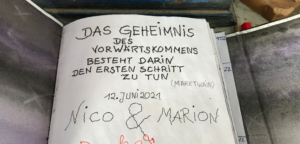 DAS GEHEIMNIS
DES
VORWÄRTSKOMMENS
BESTEHT DARIN
DEN ERSTEN SCHRITT
ZU TUN
(MARK TWAIN)
12. JUNI 2021
NICO & MARION